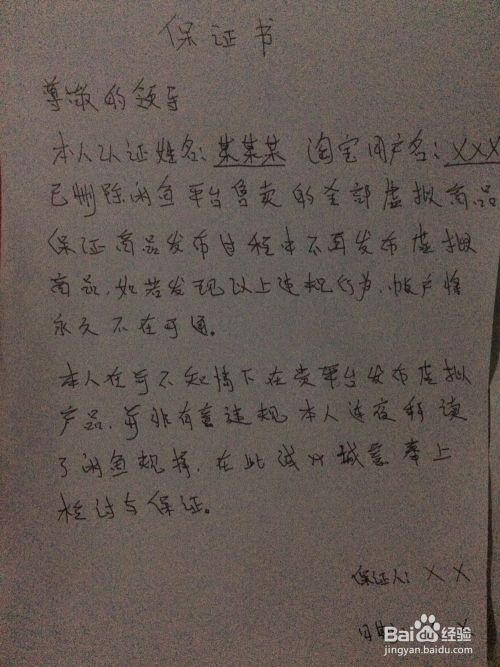 保证书
尊敬的领导
本人认证姓名:某某某 淘宝用户名:XXX
已删除闲鱼平台售卖的全部虚拟商品
保证商品发布过程中不再发布虚拟
商品,如若发现以上违规行为,帐户将
永久不在开通。
本人在不知情下在贵平台发布虚拟
产品,并非有意违规 本人连夜研读
了闲鱼规择,在此诚意奉上
检讨与保证。
保证人:X X
日期
Baidu经验
jingyan.baidu.com